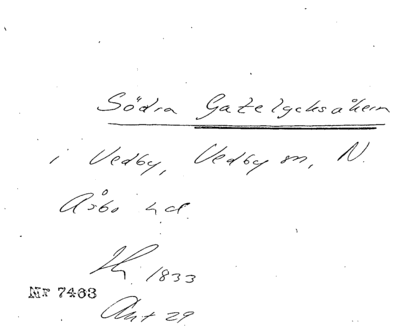 Södra Gatelycksåkern
i Vedby, Vedby sn, N.
Åsbo hd.
1833
NF 7463
Akt 29